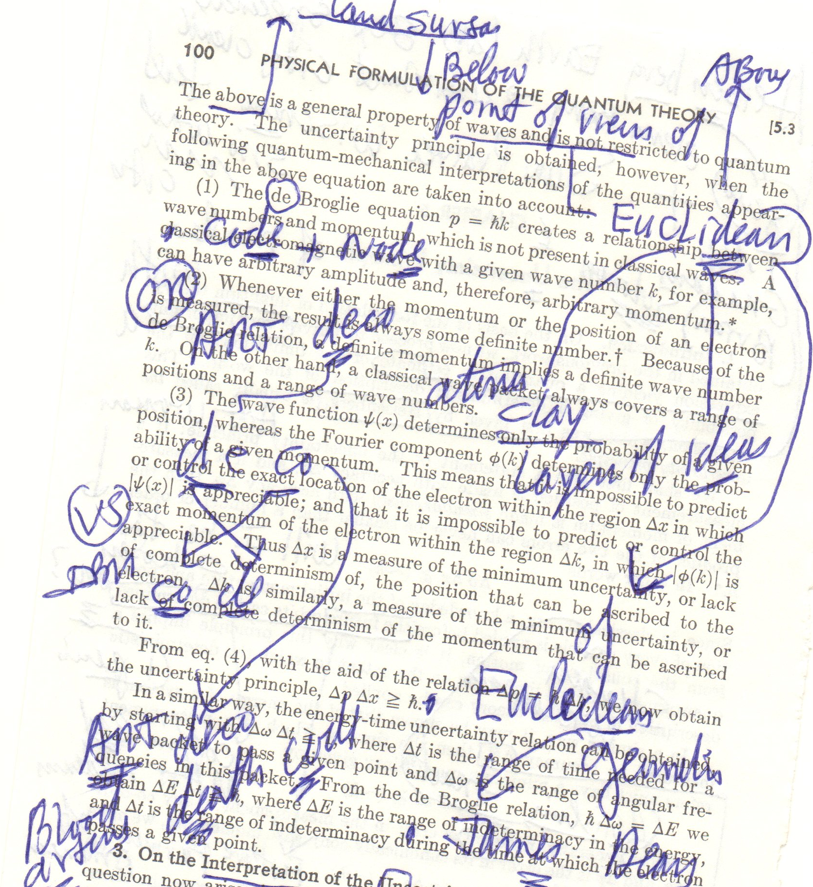 land
100 PHYSICAL FORMULATION OF THE QUANTUM THEORY [5.3
Below
point of views of
The above is a general property of waves and is not restricted to quantum
theory. The uncertainty principle is obtained, however, when the
following quantum-mechanical interpretations of the quantities appear-
ing in the above equation are taken into account:
Euclidean
(1) The de Broglie equation p = ħk creates a relationship between
wave numbers and momentum, which is not present in classical waves. A
Code + Node
classical electromagnetic wave with a given wave number k, for example,
can have arbitrary amplitude and, therefore, arbitrary momentum.*
(2) Whenever either the momentum or the position of an electron
is measured, the result is always some definite number.† Because of the
Art deco
de Broglie relation, a definite momentum implies a definite wave number
k. On the other hand, a classical wave packet always covers a range of
positions and a range of wave numbers.
clay
(3) The wave function ψ(x) determines only the probability of a given
position, whereas the Fourier component ϕ(k) determines only the prob-
layer of ideas
ability of a given momentum. This means that it is impossible to predict
de co
or control the exact location of the electron within the region Δx in which
|ψ(x)| is appreciable; and that it is impossible to predict or control the
VS
exact momentum of the electron within the region Δk, in which |ϕ(k)| is
appreciable. Thus Δx is a measure of the minimum uncertainty, or lack
of complete determinism of, the position that can be ascribed to the
co de
electron. Δk is, similarly, a measure of the minimum uncertainty, or
lack of complete determinism of the momentum that can be ascribed
to it.
of
From eq. (4), with the aid of the relation Δp = ħ Δk, we now obtain
the uncertainty principle, Δp Δx ≧ ħ.
Euclidean
In a similar way, the energy-time uncertainty relation can be obtained,
by starting with Δω Δt ≧ 1, where Δt is the range of time needed for a
wave packet to pass a given point and Δω is the range of angular fre-
quencies in this packet. From the de Broglie relation, ħ Δω = ΔE we
death
obtain ΔE Δt ≧ ħ, where ΔE is the range of indeterminacy in the energy,
and Δt is the range of indeterminacy during the time at which the electron
James
passes a given point.
3. On the Interpretation of the
question now